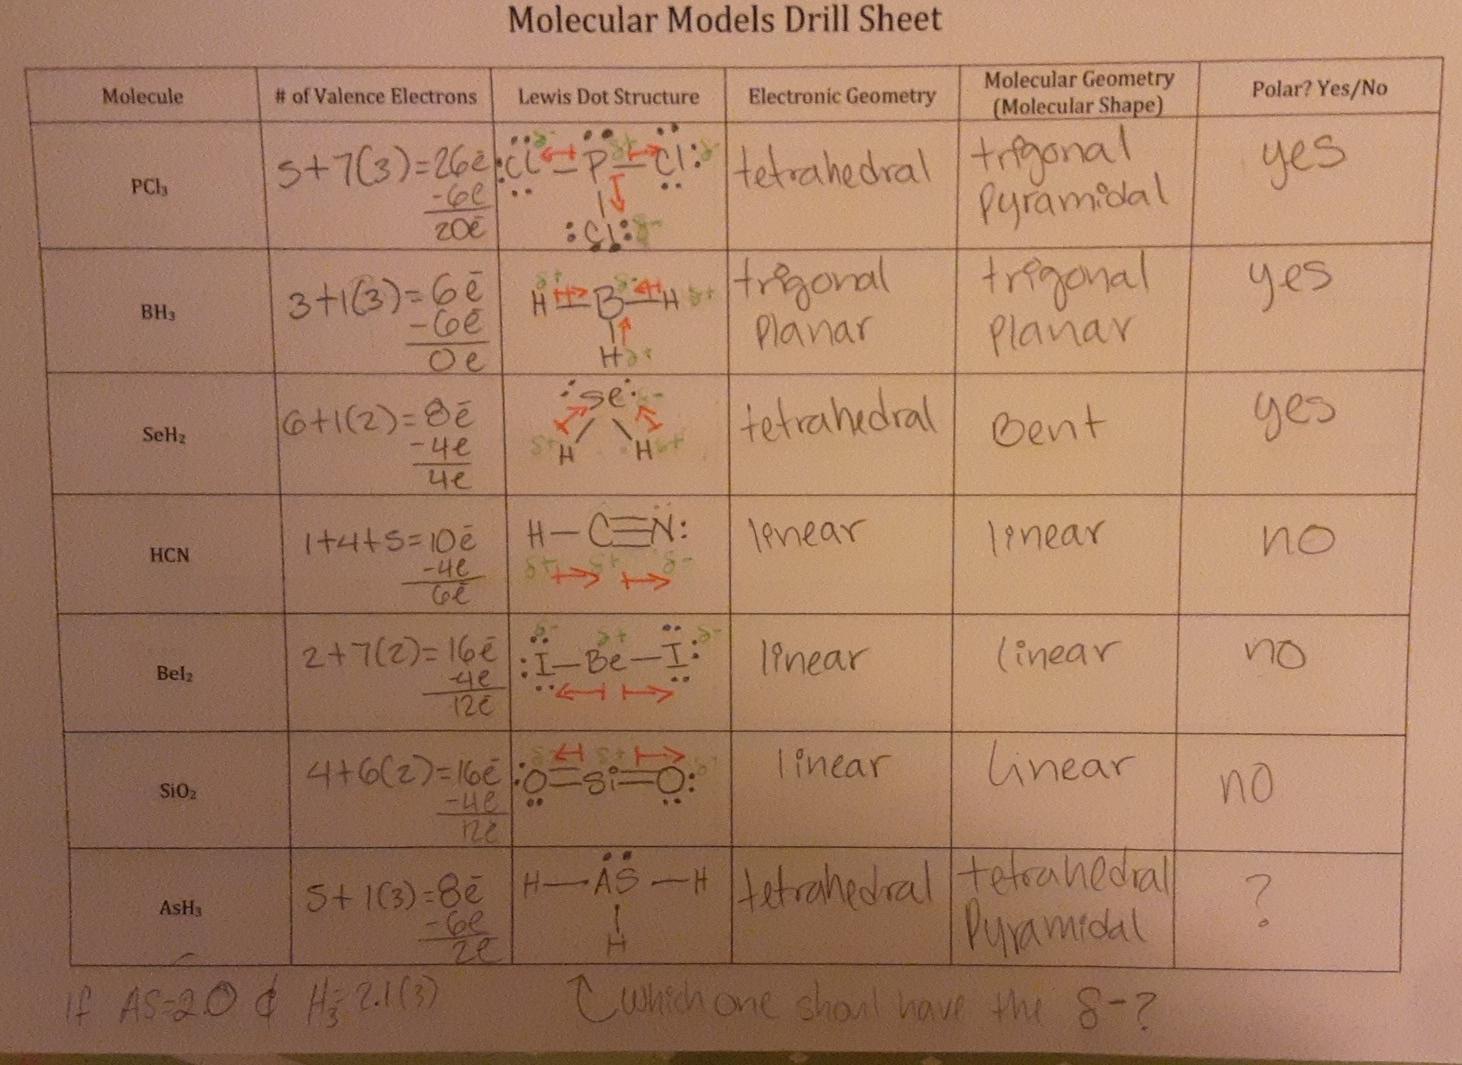 Molecular Models Drill Sheet
Molecule # of Valence Electrons Lewis Dot Structure Electronic Geometry Molecular Geometry (Molecular Shape) Polar? Yes/No
PCl₃
5+7(3)=26ē
-6ē
20ē
:Cl–P–Cl:
:Cl:
δ- δ+ δ-
δ-
tetrahedral
trigonal
Pyramidal
yes
BH₃
3+1(3)=6ē
-6ē
0ē
H–B–H
H
δ+ δ- δ+
δ+
trigonal
Planar
trigonal
Planar
yes
SeH₂
6+1(2)=8ē
-4e
4e
Se
H H
δ-
δ+ δ+
tetrahedral
Bent
yes
HCN
1+4+5=10ē
-4e
6ē
H–C≡N:
δ+ δ+ δ-
linear
linear
no
BeI₂
2+7(2)=16ē
-4e
12ē
δ- δ+ δ-
:I–Be–I:
linear
linear
no
SiO₂
4+6(2)=16ē
-4e
12ē
δ- δ+ δ-
:O=Si=O:
linear
Linear
no
AsH₃
5+1(3)=8ē
-6e
2ē
H–AS–H
H
tetrahedral
tetrahedral
Pyramidal
?
If AS=2.0 ¢ H₃=2.1(3)
which one shoul have the δ-?